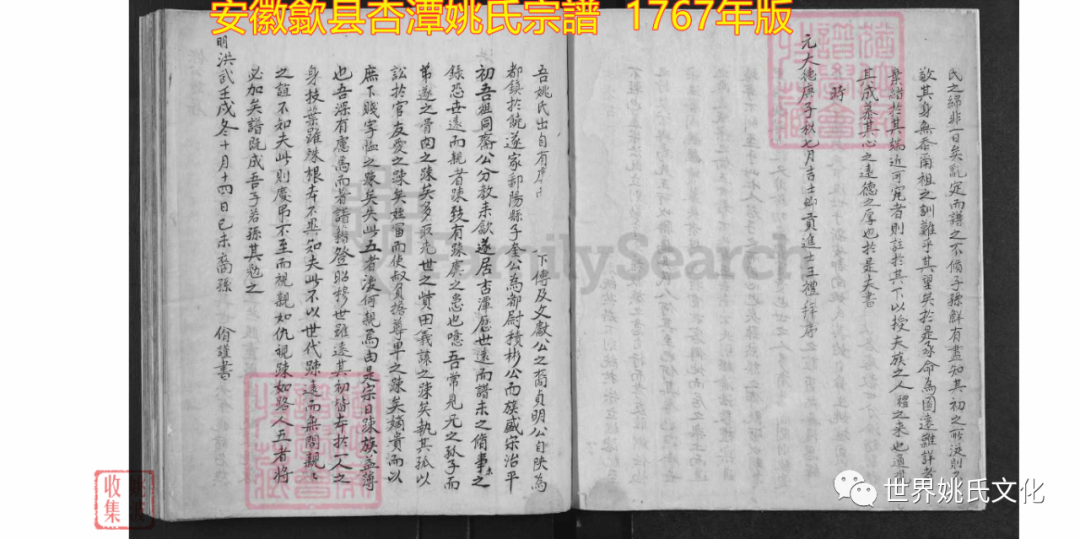 安徽歙县杏潭姚氏宗譜 1767年版
民之綿非一日矣亂定而譜之不脩子孫鮮有盡知其初之所從則
敬其身無忝南祖之訓難乎其望矣於是承命為圖遠雖詳者
葉譜於其端近可究者則註於其下以授夫族之人禮之來也適
其成慕其心之遠德之厚也於是夫書
時
元大德庚子秋七月吉士鄉貢進士三禮拜序
吾姚氏出自有虞 下傳及文獻公之裔貞明公自陝為
都鎮於饒遂家鄱陽縣子奎公為都尉積彬公而族盛宋治平
初吾祖同齋公分教來歙遂居杏潭歷世遠而譜未之脩事之
錄恐世遠而親者踈踈致有踈虞之患也噫吾常見元之孤子而
弟遂之骨肉之踈矣多取先世之貲田義讓之踈矣執其孤以
訟於官友愛之踈矣姪富而使叔負擔尊卑之踈矣嫡貴而以
庶下賤字恤之踈矣失此五者凌何親焉由是宗日踈族益薄
也吾深有慮焉而著譜 登昭穆世雖遠其初皆本於一人之
身枝葉雖殊根本不異知夫此不以世代踈遠而無間親
之誼不知夫此則慶弔不至而視親如仇視踈如路人五者將
必加矣譜既成吾子若孫其勉之
明洪武壬戌冬十月十四日己未裔孫 脩謹書
FamilySearch
收集
世界姚氏文化